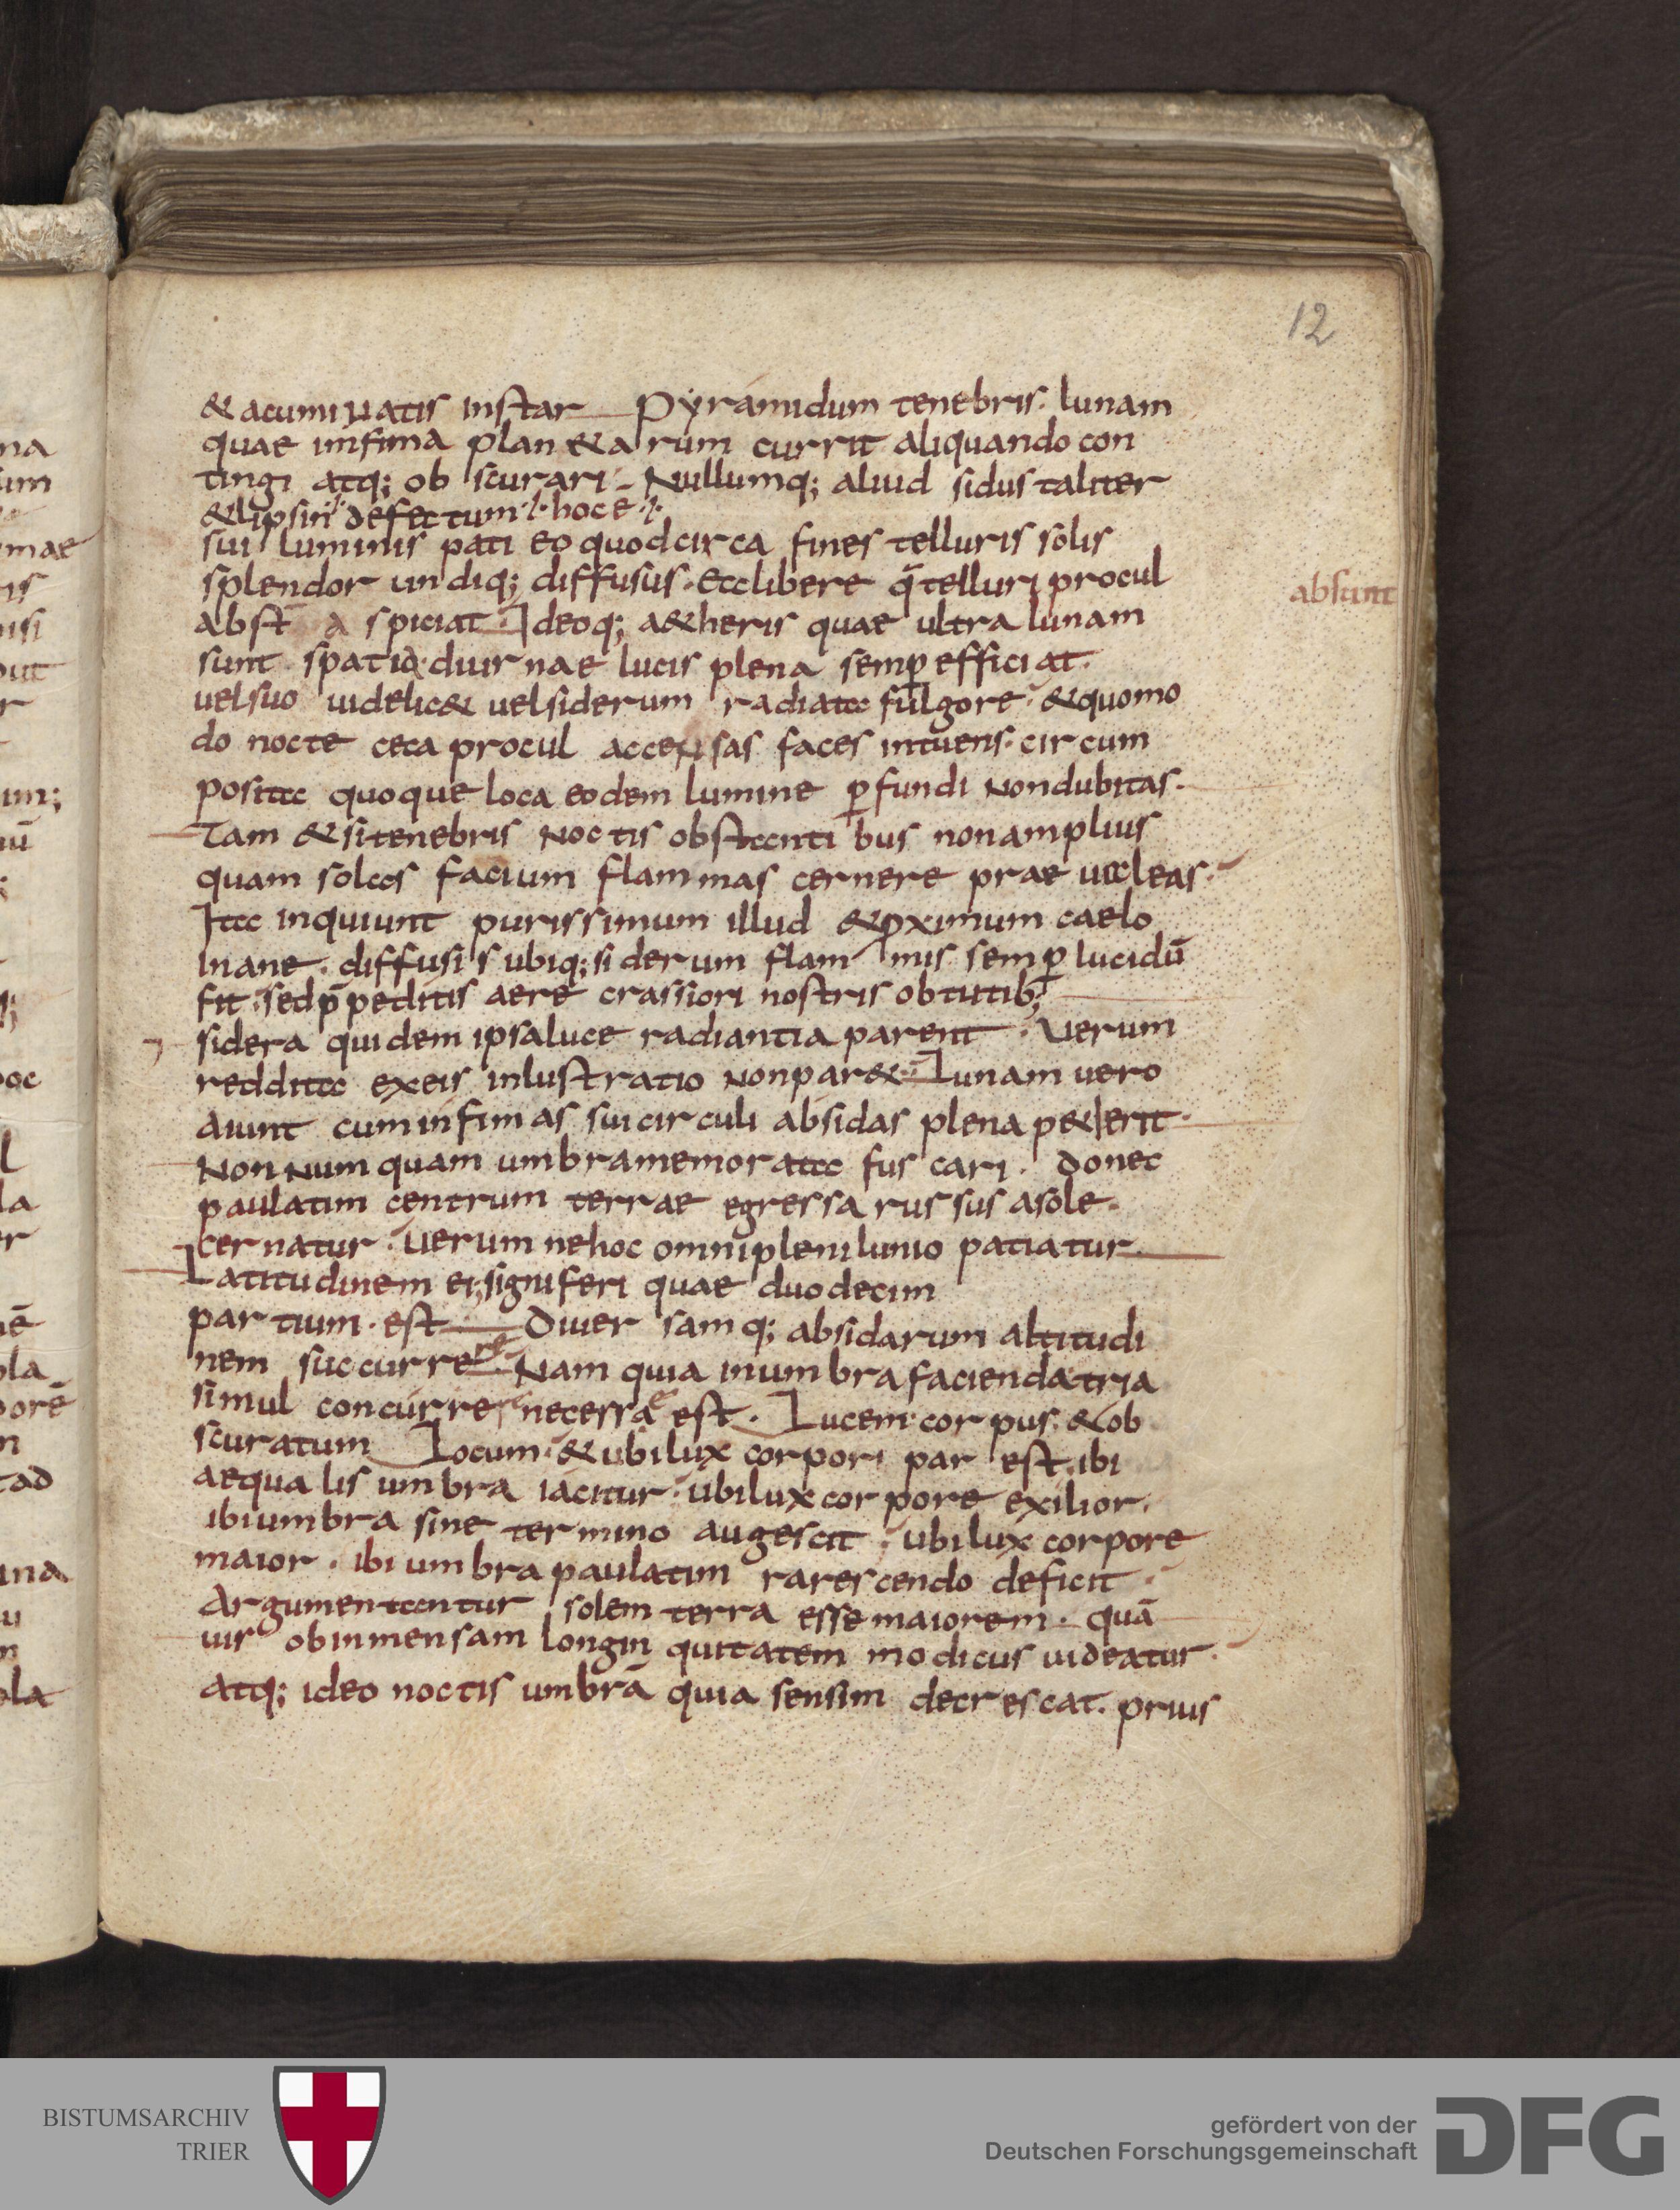 12
& acuminatis instar Pyramidum tenebris. lunam
quae infima plan&arum currit aliquando con
tingi atq; obscurari. Nullumq; aliud sidus taliter
&lipsin defectum ·/· hoc e ·/·
sui luminis pati eo quod circa fines telluris solis
splendor undiq; diffusus. Ea libere q̄ telluri procul
abst̄ aspiciat. Ideoq; a&heris quae ultra lunam
absunt
sunt spatia diurnae lucis plena semꝑ efficiat.
uel suo uidelic& uel siderum radiata fulgore. & quomo
do nocte ceca procul accensas faces intuens. circum
posita quoque loca eodem lumine ꝑfundi non dubitas.
Tam &si tenebris noctis obstantibus non amplius
quam solas facium flammas cernere praeualeas.
Ita inquiunt purissimum illud & ꝓximum caelo
inane. diffusis ubiq; siderum flammis semꝑ lucidū
fit. sed p̄peditis aere crassiori nostris obtutib;
sidera quidem ipsa luce radiantia parent. Uerum
reddita ex eis inlustratio non par&. Lunam uero
aiunt cum infimas sui circuli absidas plena p&ierit.
Non numquam umbra memorata fuscari. donec
paulatim centrum terrae egressa russus a sole.
cernatur. Uerum ne hoc omni plenilunio patiatur.
Latitudinem ei; signiferi quae duodecim
partium. est Diuersamq; absidarum altitudi
nem succurrere. Nam quia in umbra facienda tria
simul concurrere necessae est. Lucem. corpus. & ob
scuratum Locum. & ubi lux corpori par est. ibi
aequalis umbra iacitur. ubi lux corpore exilior.
ibi umbra sine termino augescit. ubi lux corpore
maior. ibi umbra paulatim rarescendo deficit.
Argumentantur solem terra esse maiorem. quā
uis ob inmensam longinquitatem modicus uideatur.
atq; ideo noctis umbrā quia sensim decrescat. prius
BISTUMSARCHIV
TRIER
gefördert von der
Deutschen Forschungsgemeinschaft
DFG